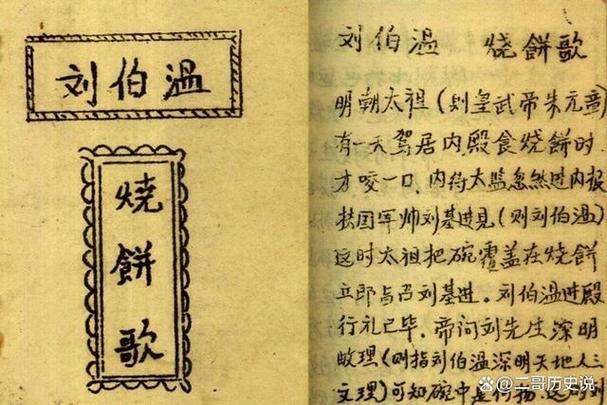 刘伯温
燒
餅
歌
刘伯温 烧餅歌
明朝太祖(则皇武帝朱元璋)
有一天驾居内殿食烧餅时
才咬一口,内侍太监忽然进内报
国军帅刘基进見(则刘伯温)
这时太祖把碗覆盖在烧餅
立即与召刘基进。刘伯温进殿
行礼已毕。帝问刘先生深明
理(则指刘伯温深明天地人三
文理)可知碗中是何物
@二哥历史说